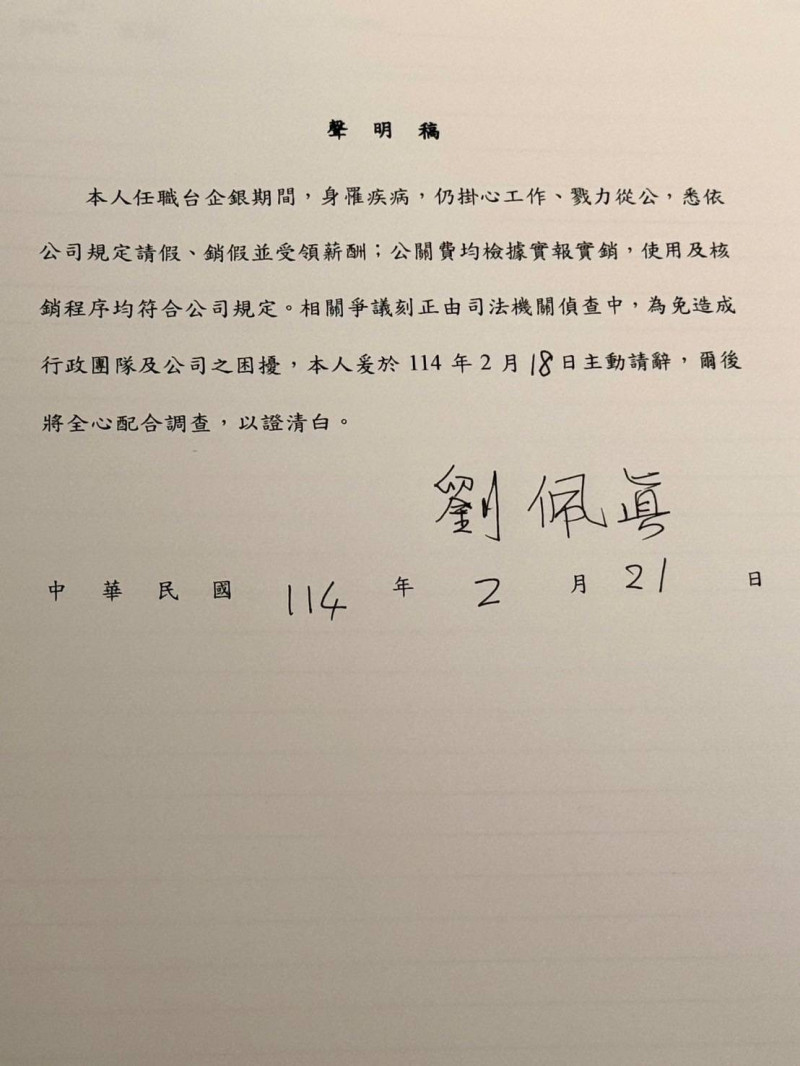 聲明稿
本人任職台企銀期間，身罹疾病，仍掛心工作、戮力從公，悉依
公司規定請假、銷假並受領薪酬；公關費均檢據實報實銷，使用及核
銷程序均符合公司規定。相關爭議刻正由司法機關偵查中，為免造成
行政團隊及公司之困擾，本人爰於 114 年 2 月 18 日主動請辭，爾後
將全心配合調查，以證清白。
劉佩眞
中華民國 114 年 2 月 21 日